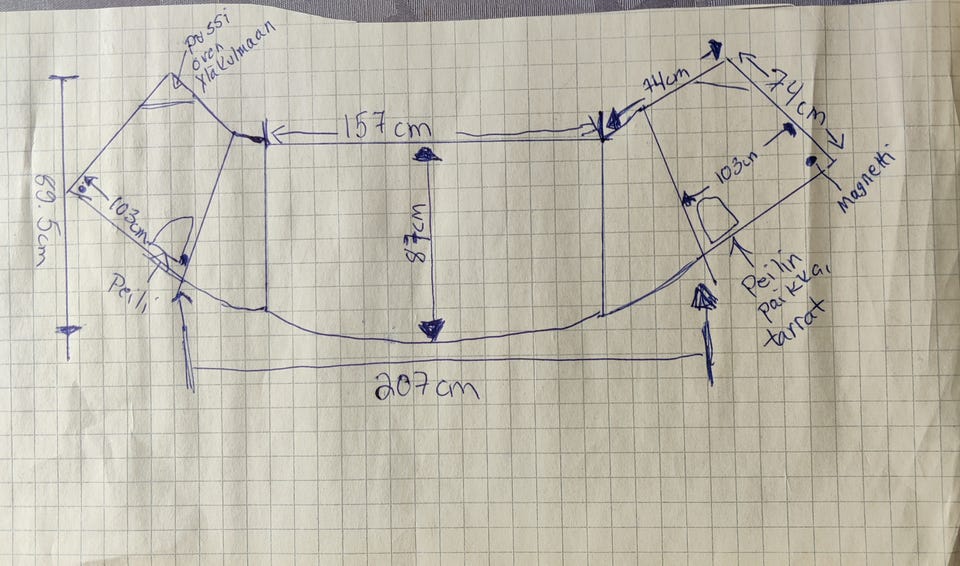 pussi
oven
yläkulmaan
157cm
74cm
74cm
103cm
Magnetti
89.5cm
103cm
87cm
Peili
Peilin
paikka,
tarrat
207cm